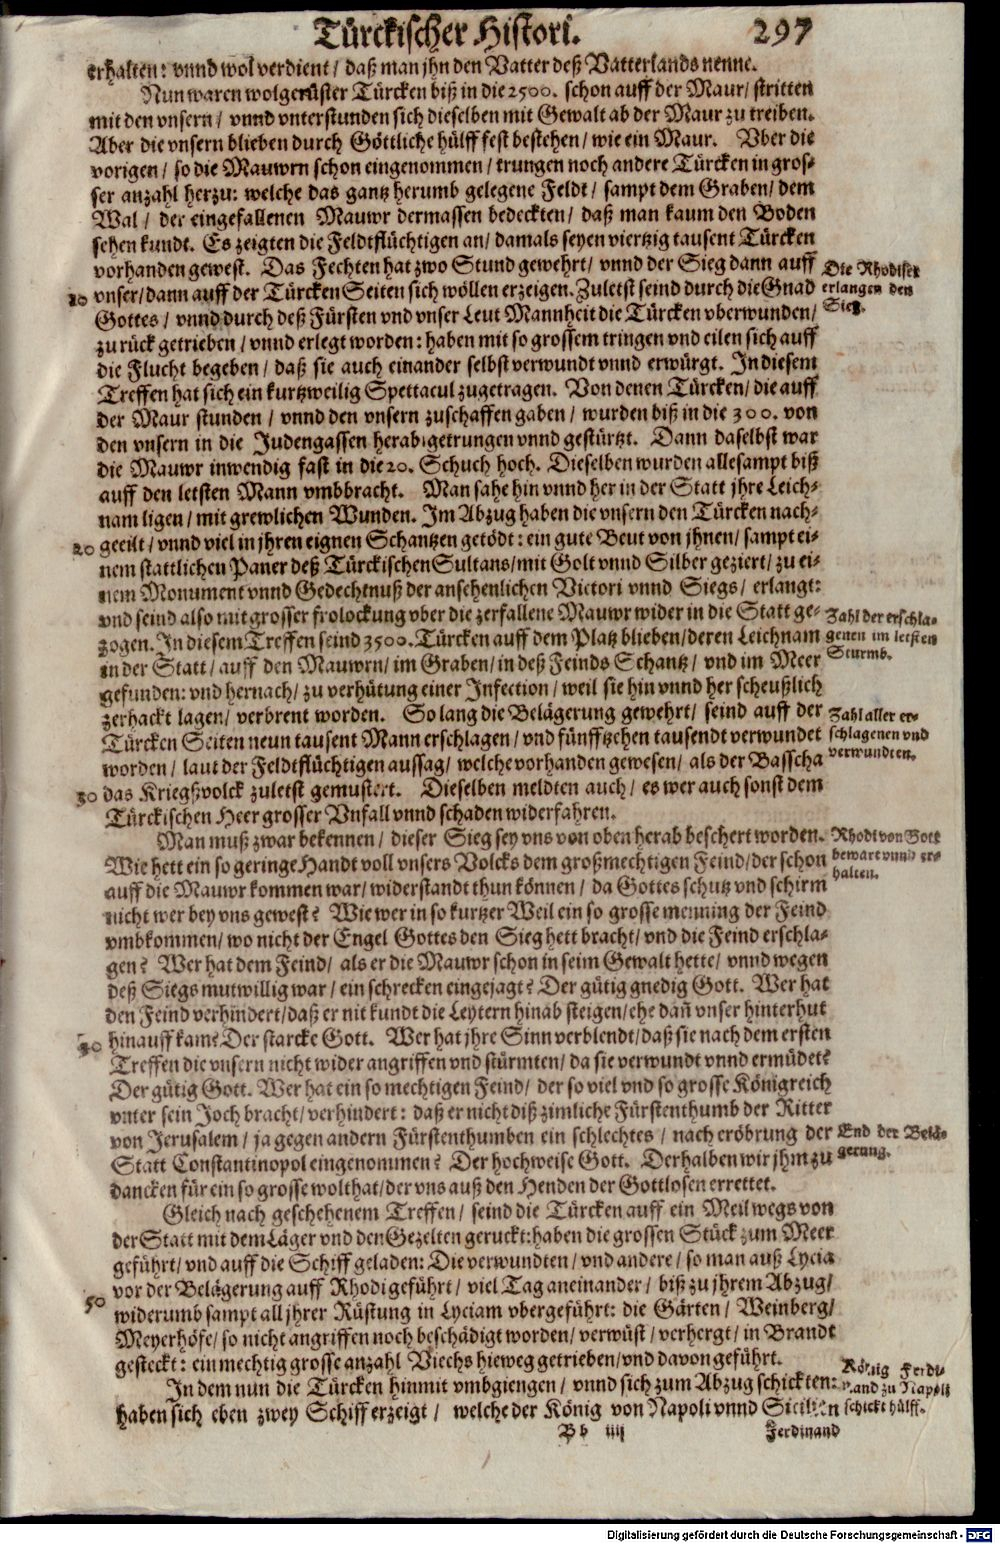 Türckischer Histori. 297
erhalten: vnnd wol verdient / daß man jhn den Vatter deß Vatterlands nenne.
Nun waren wolgerüster Türcken biß in die 2500. schon auff der Maur / stritten
mit den vnsern / vnnd vnterstunden sich dieselben mit Gewalt ab der Maur zu treiben.
Aber die vnsern blieben durch Göttliche hülff fest bestehen / wie ein Maur. Vber die
vorigen / so die Mauwrn schon eingenommen / trungen noch andere Türcken in gros-
ser anzahl herzu: welche das gantz herumb gelegene Feldt / sampt dem Graben / dem
Wal / der eingefallenen Mauwr dermassen bedeckten / daß man kaum den Boden
sehen kundt. Es zeigten die Feldtflüchtigen an / damals seyen viertzig tausent Türcken
vorhanden gewest. Das Fechten hat zwo Stund gewehrt / vnnd der Sieg dann auff
Die Rhodiser
10 vnser / dann auff der Türcken Seiten sich wöllen erzeigen. Zuletst seind durch die Gnad
erlangen den
Gottes / vnnd durch deß Fürsten vnd vnser Leut Mannheit die Türcken vberwunden /
Sieg.
zu rück getrieben / vnnd erlegt worden: haben mit so grossem tringen vnd eilen sich auff
die Flucht begeben / daß sie auch einander selbst verwundt vnnd erwürgt. In diesem
Treffen hat sich ein kurtzweilig Spettacul zugetragen. Von denen Türcken / die auff
der Maur stunden / vnnd den vnsern zuschaffen gaben / wurden biß in die 300. von
den vnsern in die Judengassen herab getrungen vnnd gestürtzt. Dann daselbst war
die Mauwr inwendig fast in die 20. Schuch hoch. Dieselben wurden allesampt biß
auff den letsten Mann vmbbracht. Man sahe hin vnnd her in der Statt jhre Leich-
nam ligen / mit grewlichen Wunden. Im Abzug haben die vnsern den Türcken nach-
20 geeilt / vnnd viel in jhren eignen Schantzen getödt: ein gute Beut von jhnen / sampt ei-
nem stattlichen Paner deß Türckischen Sultans / mit Golt vnnd Silber geziert / zu ei-
nem Monument vnnd Gedechtnuß der ansehenlichen Victori vnnd Siegs / erlangt:
vnd seind also mit grosser frolockung vber die zerfallene Mauwr wider in die Statt ge-
Zahl der erschla-
zogen. In diesem Treffen seind 3500. Türcken auff dem Platz blieben / deren Leichnam
genen im letsten
in der Statt / auff den Mauwrn / im Graben / in deß Feinds Schantz / vnd im Meer
Sturmb.
gefunden: vnd hernach / zu verhütung einer Infection / weil sie hin vnnd her scheußlich
zerhackt lagen / verbrent worden. So lang die Belägerung gewehrt / seind auff der
Zahl aller er-
Türcken Seiten neun tausent Mann erschlagen / vnd fünfftzehen tausendt verwundet
schlagenen vnd
worden / laut der Feldtflüchtigen aussag / welche vorhanden gewesen / als der Basscha
verwundten.
30 das Kriegßvolck zuletst gemustert. Dieselben meldten auch / es wer auch sonst dem
Türckischen Heer grosser Vnfall vnnd schaden widerfahren.
Man muß zwar bekennen / dieser Sieg sey vns von oben herab beschert worden.
Rhodt von Gott
Wie hett ein so geringe Handt voll vnsers Volcks dem großmechtigen Feind / der schon
bewart vnnd er-
auff die Mauwr kommen war / widerstandt thun können / da Gottes schutz vnd schirm
halten.
nicht wer bey vns gewest? Wie wer in so kurtzer Weil ein so grosse menning der Feind
vmbkommen / wo nicht der Engel Gottes den Sieg hett bracht / vnd die Feind erschla-
gen? Wer hat dem Feind / als er die Mauwr schon in seim Gewalt hette / vnnd wegen
deß Siegs mutwillig war / ein schrecken eingejagt? Der gütig gnedig Gott. Wer hat
den Feind verhindert / daß er nit kundt die Leytern hinab steigen / ehe dañ vnser hinterhut
40 hinauff kam? Der starcke Gott. Wer hat jhre Sinn verblendt / daß sie nach dem ersten
Treffen die vnsern nicht wider angriffen vnd stürmten / da sie verwundt vnnd ermüdet?
Der gütig Gott. Wer hat ein so mechtigen Feind / der so viel vnd so grosse Königreich
vnter sein Joch bracht / verhindert: daß er nicht diß zimliche Fürstenthumb der Ritter
von Jerusalem / ja gegen andern Fürstenthumben ein schlechtes / nach eröbrung der
End der Belä-
Statt Constantinopol eingenommen? Der hochweise Gott. Derhalben wir jhm zu
gerung.
dancken für ein so grosse wolthat / der vns auß den Henden der Gottlosen errettet.
Gleich nach geschehenem Treffen / seind die Türcken auff ein Meil wegs von
der Statt mit dem Läger vnd den Gezelten geruckt: haben die grossen Stück zum Meer
geführt / vnd auff die Schiff geladen: Die verwundten / vnd andere / so man auß Lycia
vor der Belägerung auff Rhodi geführt / viel Tag aneinander / biß zu jhrem Abzug /
50 widerumb sampt all jhrer Rüstung in Lyciam vbergeführt: die Gärten / Weinberg /
Meyerhöfe / so nicht angriffen noch beschädigt worden / verwüst / verhergt / in Brandt
gesteckt: ein mechtig grosse anzahl Viechs hieweg getrieben / vnd davon geführt.
König Ferdi-
In dem nun die Türcken hinmit vmbgiengen / vnnd sich zum Abzug schickten:
nand zu Napoli
haben sich eben zwey Schiff erzeigt / welche der König von Napoli vnnd Sicilien
schickt hülff.
Bb iiij Ferdinand
Digitalisierung gefördert durch die Deutsche Forschungsgemeinschaft - DFG